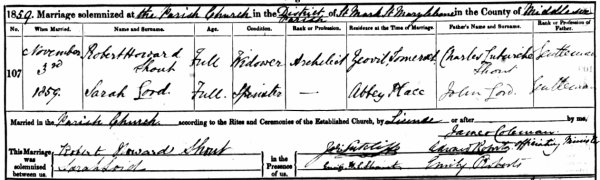 1859. Marriage solemnized at the Parish Church in the District Parish of St Mark St Marylebone in the County of Middlesex
No. When Married. Name and Surname. Age. Condition. Rank or Profession. Residence at the Time of Marriage. Father's Name and Surname. Rank or Profession of Father.
107 November 3rd 1859. Robert Howard Shout Full Widower Architect Yeovil Somerset Charles Shout Gentleman
Sarah Lord Full. Spinster — Abbey Place John Lord. Gentleman
Married in the Parish Church according to the Rites and Ceremonies of the Established Church, by License or after by me,
This Marriage was solemnized between us, Robert Howard Shout Sarah Lord in the Presence of Edward Roberts Emily Roberts James Coleman Officiating Minister